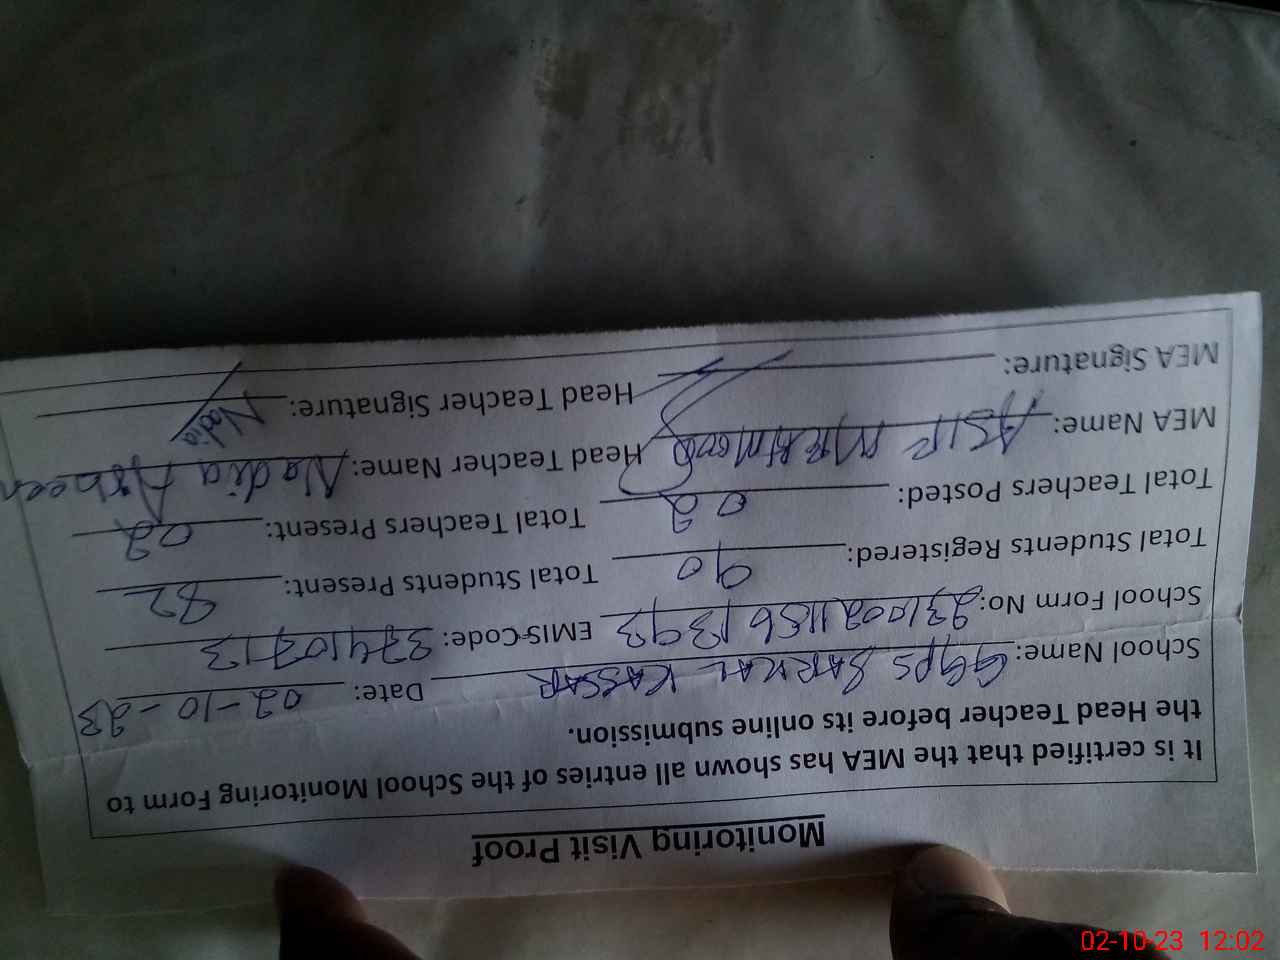 Monitoring Visit Proof
It is certified that the MEA has shown all entries of the School Monitoring Form to
the Head Teacher before its online submission.
School Name: GGPS SARKAL KASSAR Date: 02-10-23
School Form No: EMIS Code: 37410713
Total Students Registered: 90 Total Students Present: 82
Total Teachers Posted: 02 Total Teachers Present: 02
MEA Name: ASIF MEHMOOD Head Teacher Name: Nadia
MEA Signature: Head Teacher Signature: Nadia
02-10-23 12:02